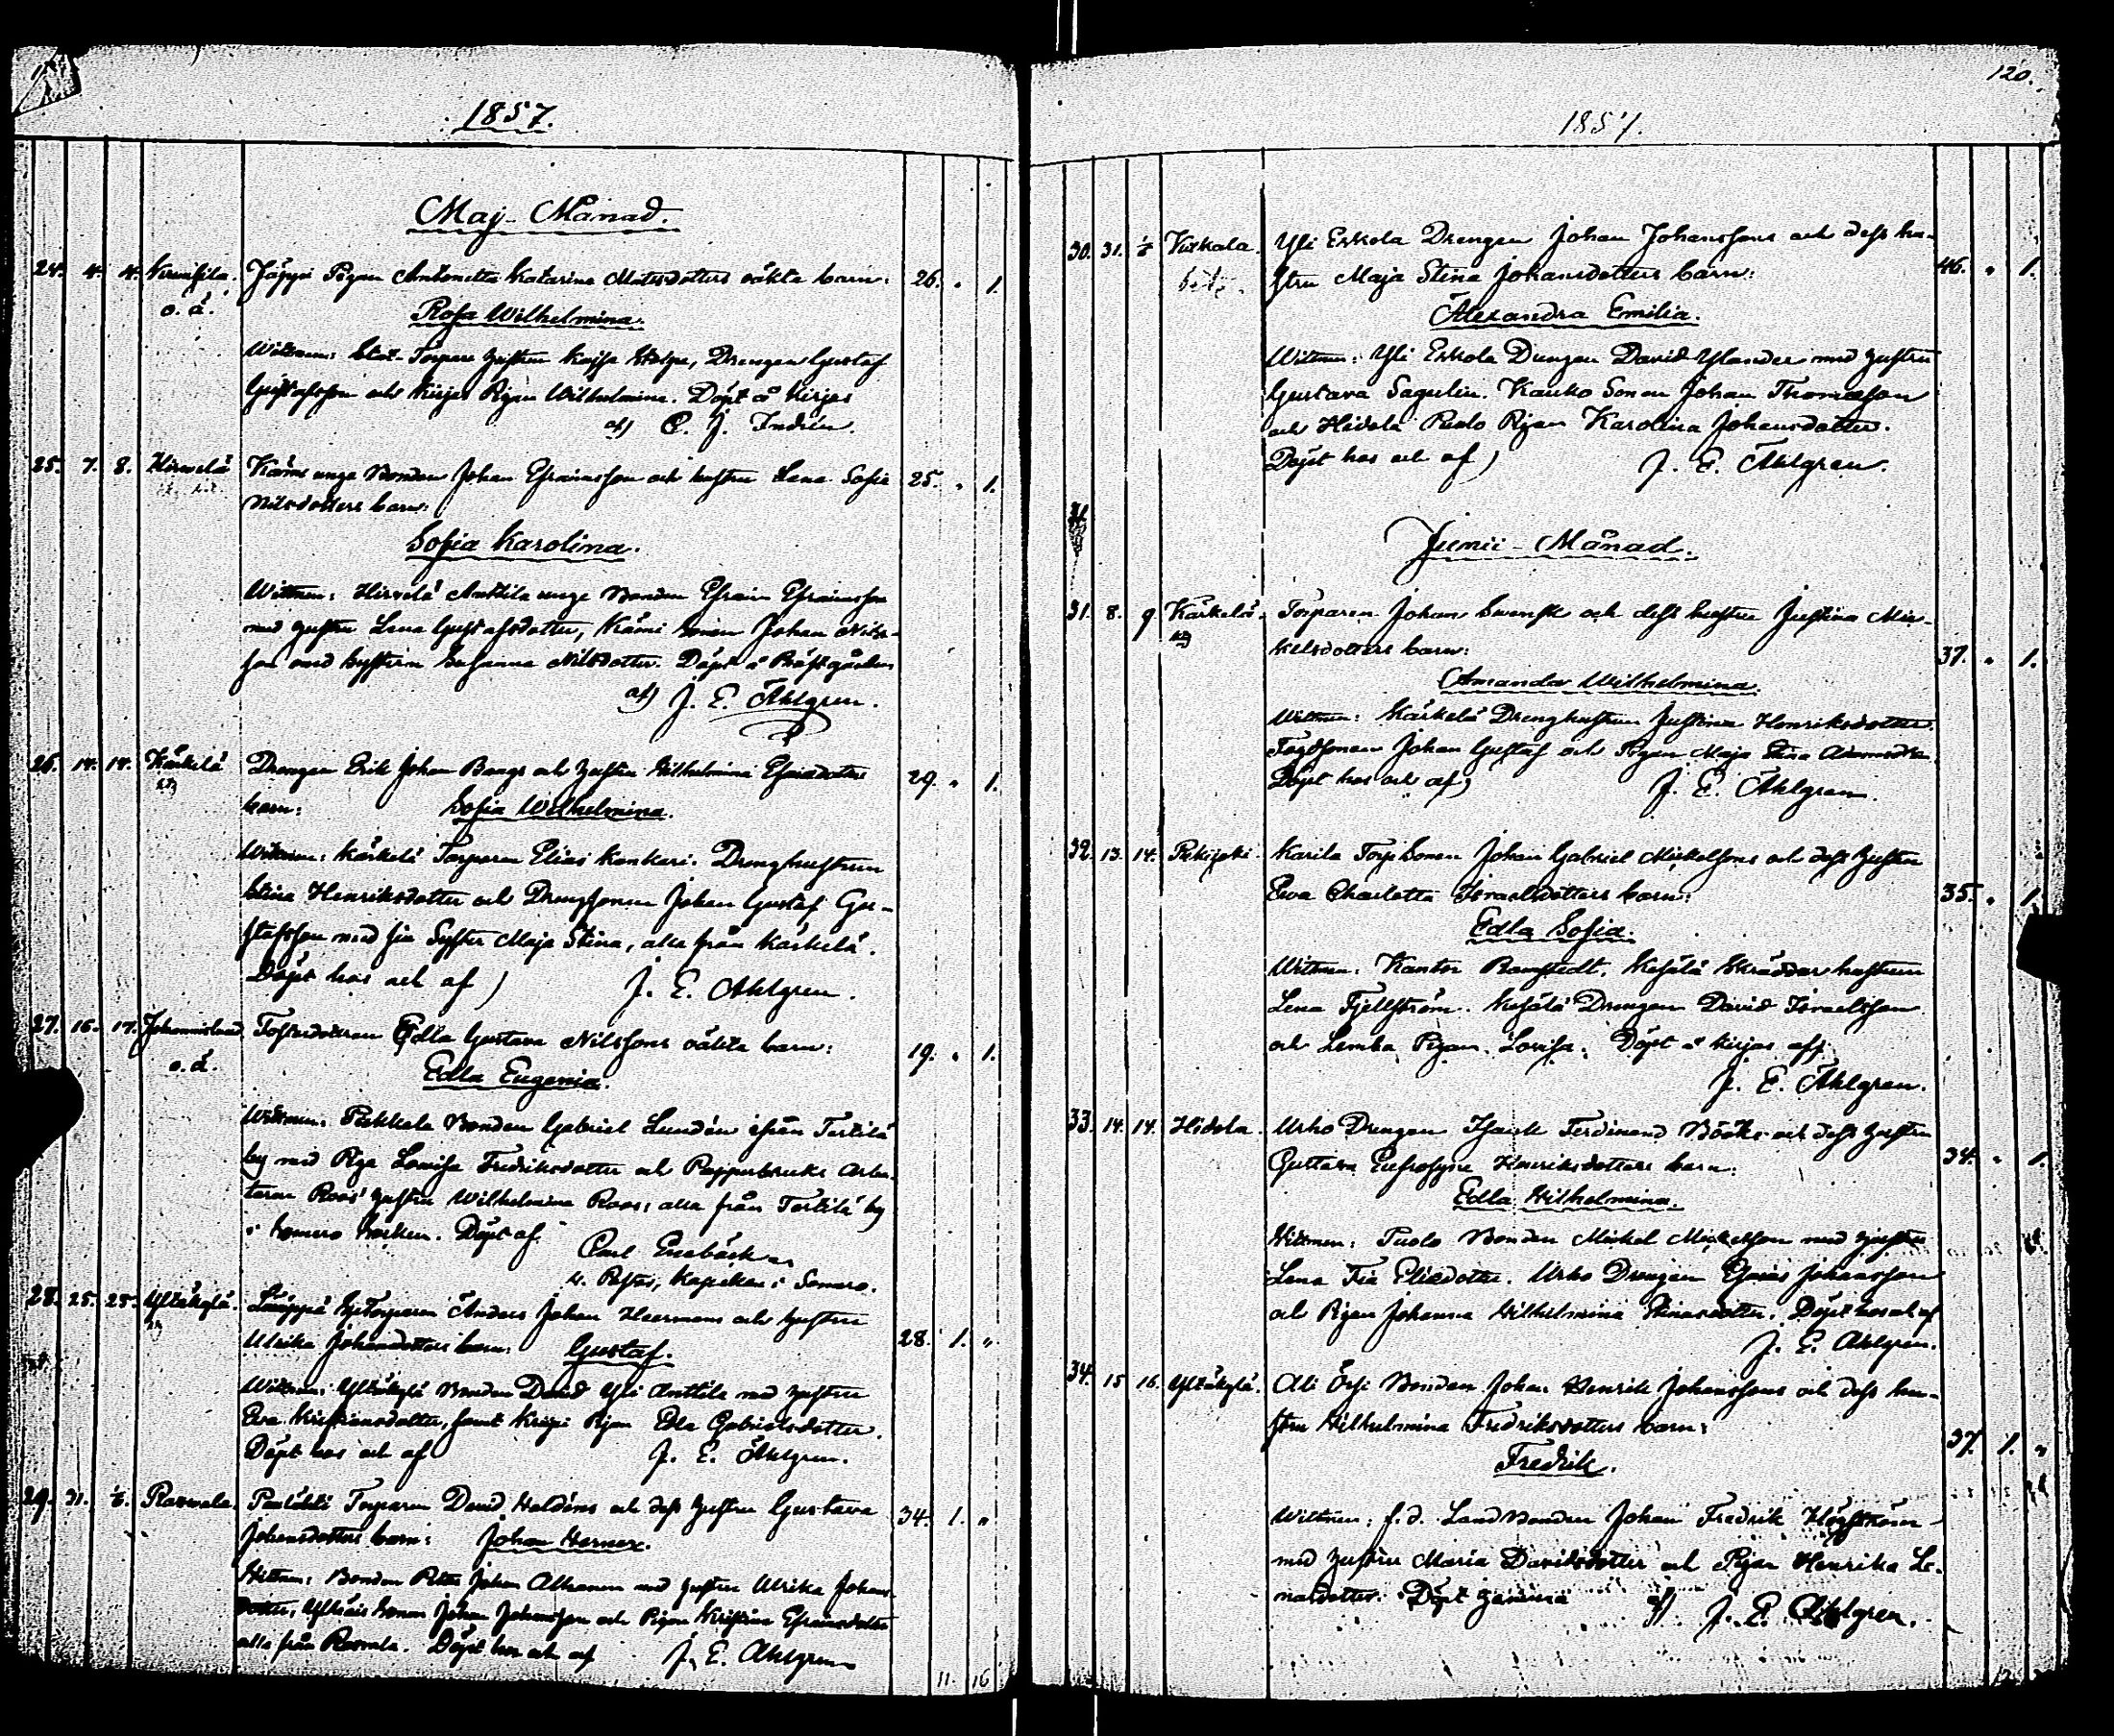 1857.
Maj-Månad.
24. 4. 4. Jäppi Pigan Antonetta Katarina Matsdotters oäkta barn: 26. " 1.
o. ä. Rosa Wilhelmina.
Wittnen: Torpare hustrun Kajsa Drengen Gustaf
Gustafsson och Kirjas Pigan Wilhelmina. Döpt å Kirjas
af) C. J. Indrén.
25. 7. 8. Hirvelä Kämi unge Bonden Johan Efraimsson och hustru Lena Sofia 25. " 1.
Nilsdotters barn:
Sofia Karolina.
Wittnen: Hirvelä Anttila unge Bonden Efraim Efraimsson
med hustru Lena Gustafsdotter, Kämi Sonen Johan Nils-
son med systern Susanna Nilsdotter. Döpt å Prästgården
af) J. E. Ahlgren.
26. 14. 14. Kärkelä Drengen Erik Johan Bangs och hustru Wilhelmina 29. " 1.
barn: Sofia Wilhelmina.
Wittnen: Kärkelä Torparen Elias Kankari. Drenghustrun
Stina Henriksdotter och Drengsonen Johan Gustaf Gu-
stafsson med sin Syster Maja Stina, alla från Kärkelä.
Döpt hos och af) J. E. Ahlgren.
27. 16. 17. Johannislund Fosterdottren Edla Gustava Nilssons oäkta barn: 19. " 1.
o. ä. Edla Eugenia.
Wittnen: Pekkala Bonden Gabriel Lundén ifrån Terttilä
by med Piga Lovisa Fredriksdotter och Pappersbruks Arbe-
taren Roos' hustru Wilhelmina Roos, alla från Terttilä by
i Somero Socken. Döpt af Carl Enebäck
v. Pastor, Kapellan i Somero.
28. 25. 25. Yltäkylä. Torparen Anders Johan Heermans och hustru
Ulrika Johansdotters barn: Gustaf. 28. 1. "
Wittnen: Yltäkylä Bonden David Yli Anttila med hustru
Eva Kristiansdotter, samt Krispi Pigan Edla Gabrielsdotter.
Döpt hos och af J. E. Ahlgren.
29. 31. 1/6. Rasvala. Torparen David Haldéns och dess hustru Gustava 34. 1. "
Johansdotters barn: Johan Herner.
Wittnen: Bonden Petter Johan Alhanen med hustru Ulrika Johans
dotter, Sonen Johan Johansson och Pigan Kristina Efraimsdotter
alla från Rasvala. Döpt hos och af J. E. Ahlgren
11. 16
120.
1857.
30. 31. Viskala. Yli Eskola Drengen Johan Johanssons och dess hu-
stru Maja Stina Johansdotters barn: 46. " 1.
Alexandra Emilia.
Wittnen: Yli Eskola Drengen David Ylander med hustru
Gustava Sagulin. Kauko Sonen Johan Thomasson
och Hidola Puolo Pigan Karolina Johansdotter.
Döpt hos och af) J. E. Ahlgren.
Junii-Månad.
31. 8. 9 Kärkelä. Torparen Johan Svensk och dess hustru Justina Mic-
kelsdotters barn: 37. " 1.
Amanda Wilhelmina.
Wittnen: Kärkelä Drenghustrun Justina Henriksdotter.
Johan Gustaf och Pigan Maja Stina
Döpt hos och af) J. E. Ahlgren.
32. 13. 14. Karila Torp Sonen Johan Gabriel Mickelsons och dess hustru
Eva Charlotta Israelsdotters barn: 35. " 1.
Edla Sofia.
Wittnen: Kantor Ramstedt. Kesälä Skräddar hustrun
Lena Fjellström. Kesälä Drengen David Israelsson
och Lemba Pigan Lovisa. Döpt å Kirjas af)
J. E. Ahlgren.
33. 14. 14. Hidola. Urho Drengen Isaak Ferdinand Bööks och dess hustru
Gustava Eufrosyne Henriksdotters barn: 34. " 1.
Edla Wilhelmina.
Wittnen: Puolo Bonden Mickel Mickelsson med hustru
Lena Fia Eliedotter. Urho Drengen Esaias Johansson
och Pigan Johanna Wilhelmina Döpt hos och af
J. E. Ahlgren.
34. 15 16. Yltäkylä. Ali Ossi Bonden Johan Henrik Johanssons och dess hu-
stru Wilhelmina Fredriksdotters barn: 37. 1. "
Fredrik.
Wittnen: f. d. Landbonden Johan Fredrik Högström
med hustru Maria Davidsdotter och Pigan Henrika Le-
nasdotter. Döpt hemma af) J. E. Ahlgren.